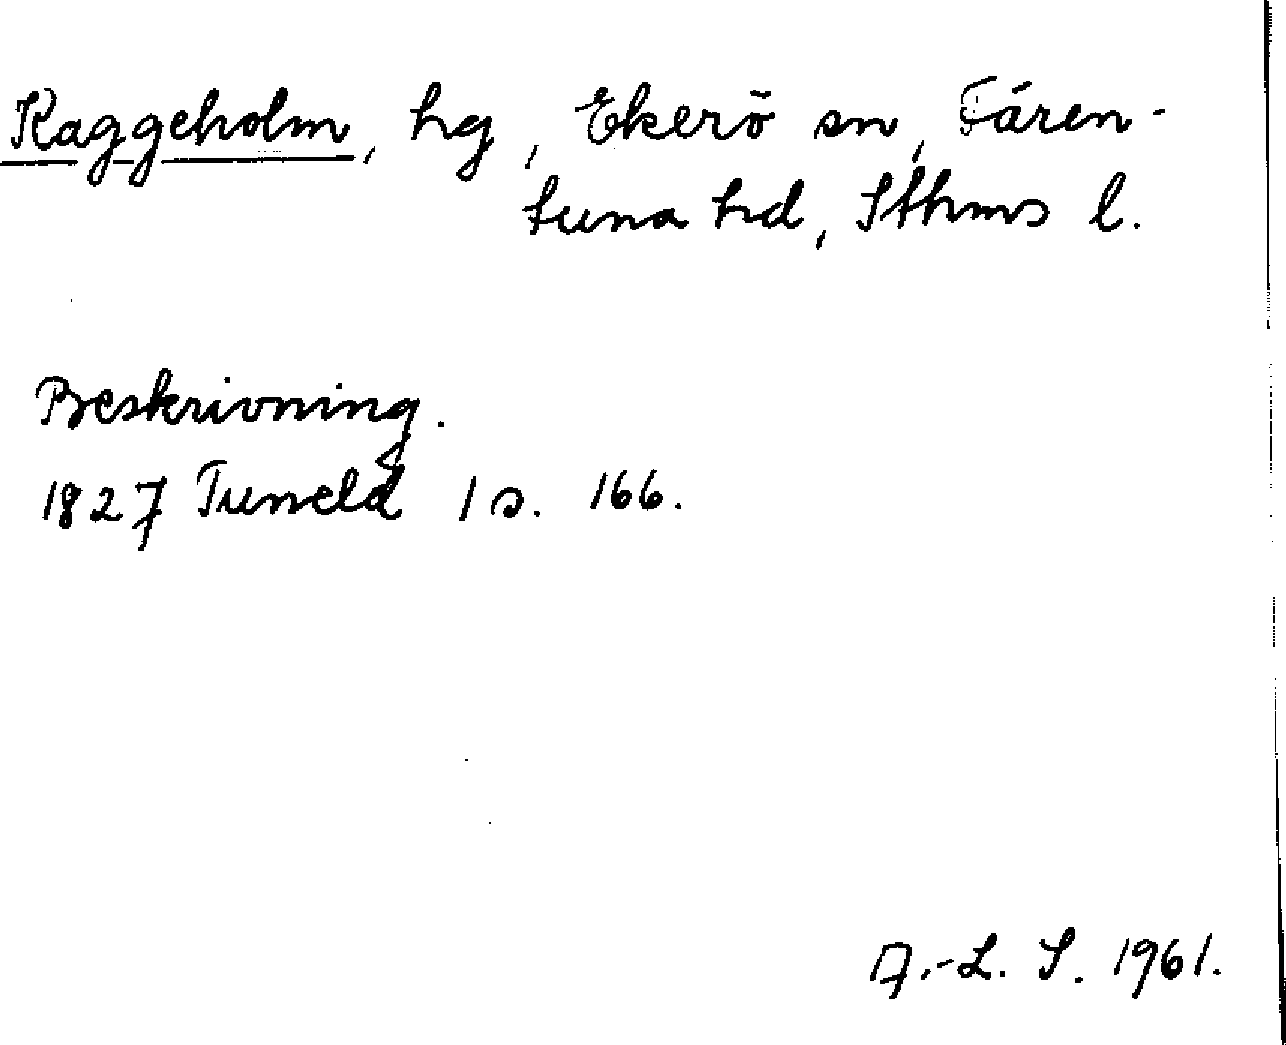 Kaggeholm, hg, Ekerö sn, Fären-
tuna hd, Sthms l.
Beskrivning.
1827 Tuneld 1 s. 166.
A.-L. S. 1961.